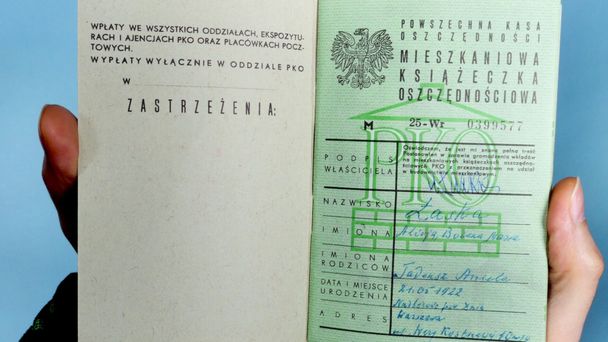 WPŁATY WE WSZYSTKICH ODDZIAŁACH, EKSPOZYTU-
RACH I AJENCJACH PKO ORAZ PLACÓWKACH POCZ-
TOWYCH.
WYPŁATY WYŁĄCZNIE W ODDZIALE PKO
W
ZASTRZEŻENIA:
POWSZECHNA KASA
OSZCZĘDNOŚCI
MIESZKANIOWA
KSIĄŻECZKA
OSZCZĘDNOŚCIOWA
M 25-Wr 0399577
PKO
Oświadczam, że jest mi znana pełna treść
Postanowień w sprawie gromadzenia wkładów
na mieszkaniowych książeczkach oszczędno-
ściowych PKO z przeznaczeniem na udział
w budownictwie mieszkaniowym.
PODPIS
WŁAŚCICIELA
NAZWISKO Łaska
IMIONA
IMIONA
RODZICÓW Tadeusz Aniela
DATA I MIEJSCE 21.05.1922
URODZENIA
ADRES Warszawa
ul.